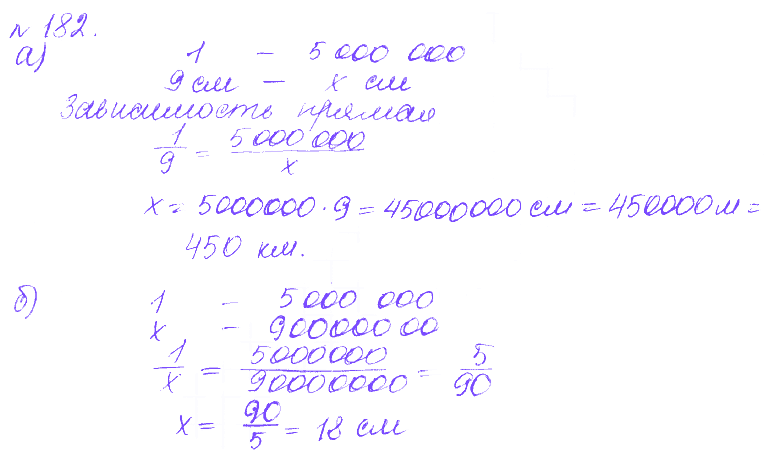 № 182.
а)
1 – 5 000 000
9 см – х см
Зависимость прямая
1/9 = 5 000 000/х
х = 5000000 · 9 = 45000000 см = 450000 м =
450 км.
б)
1 – 5 000 000
х – 90000000
1/х = 5000000/90000000 = 5/90
х = 90/5 = 18 см